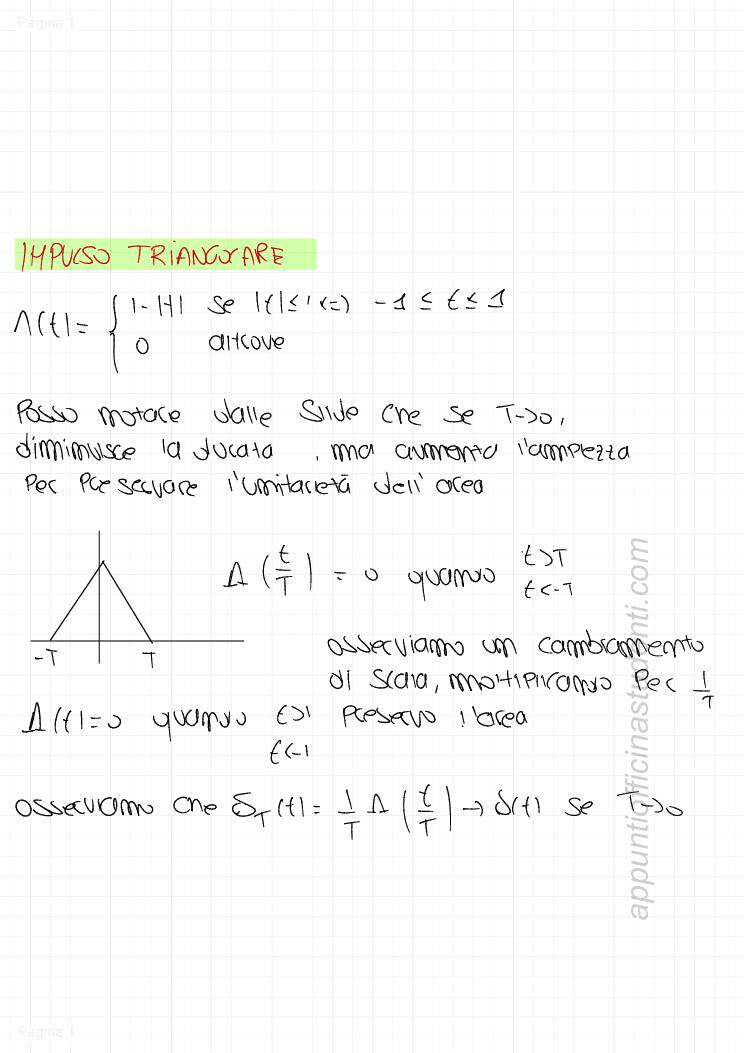 Pagina 1
IMPULSO TRIANGOLARE
Λ(t) = { 1-|t| se |t|≤1 <=> -1 ≤ t ≤ 1
0 altrove
Posso notare dalle slide che se T->0,
diminuisce la durata, ma aumenta l'ampiezza
per preservare l'unitarietà dell'area
Λ(t/T) = 0 quando t>T
t<-T
-T T
osserviamo un cambiamento
di scala, moltiplicando per 1/T
Λ(t)=0 quando t>1 preservo l'area
t<-1
osserviamo che δT(t) = 1/T Λ(t/T) → δ(t) se T->0
appuntiofficinastudenti.com
Pagina 1